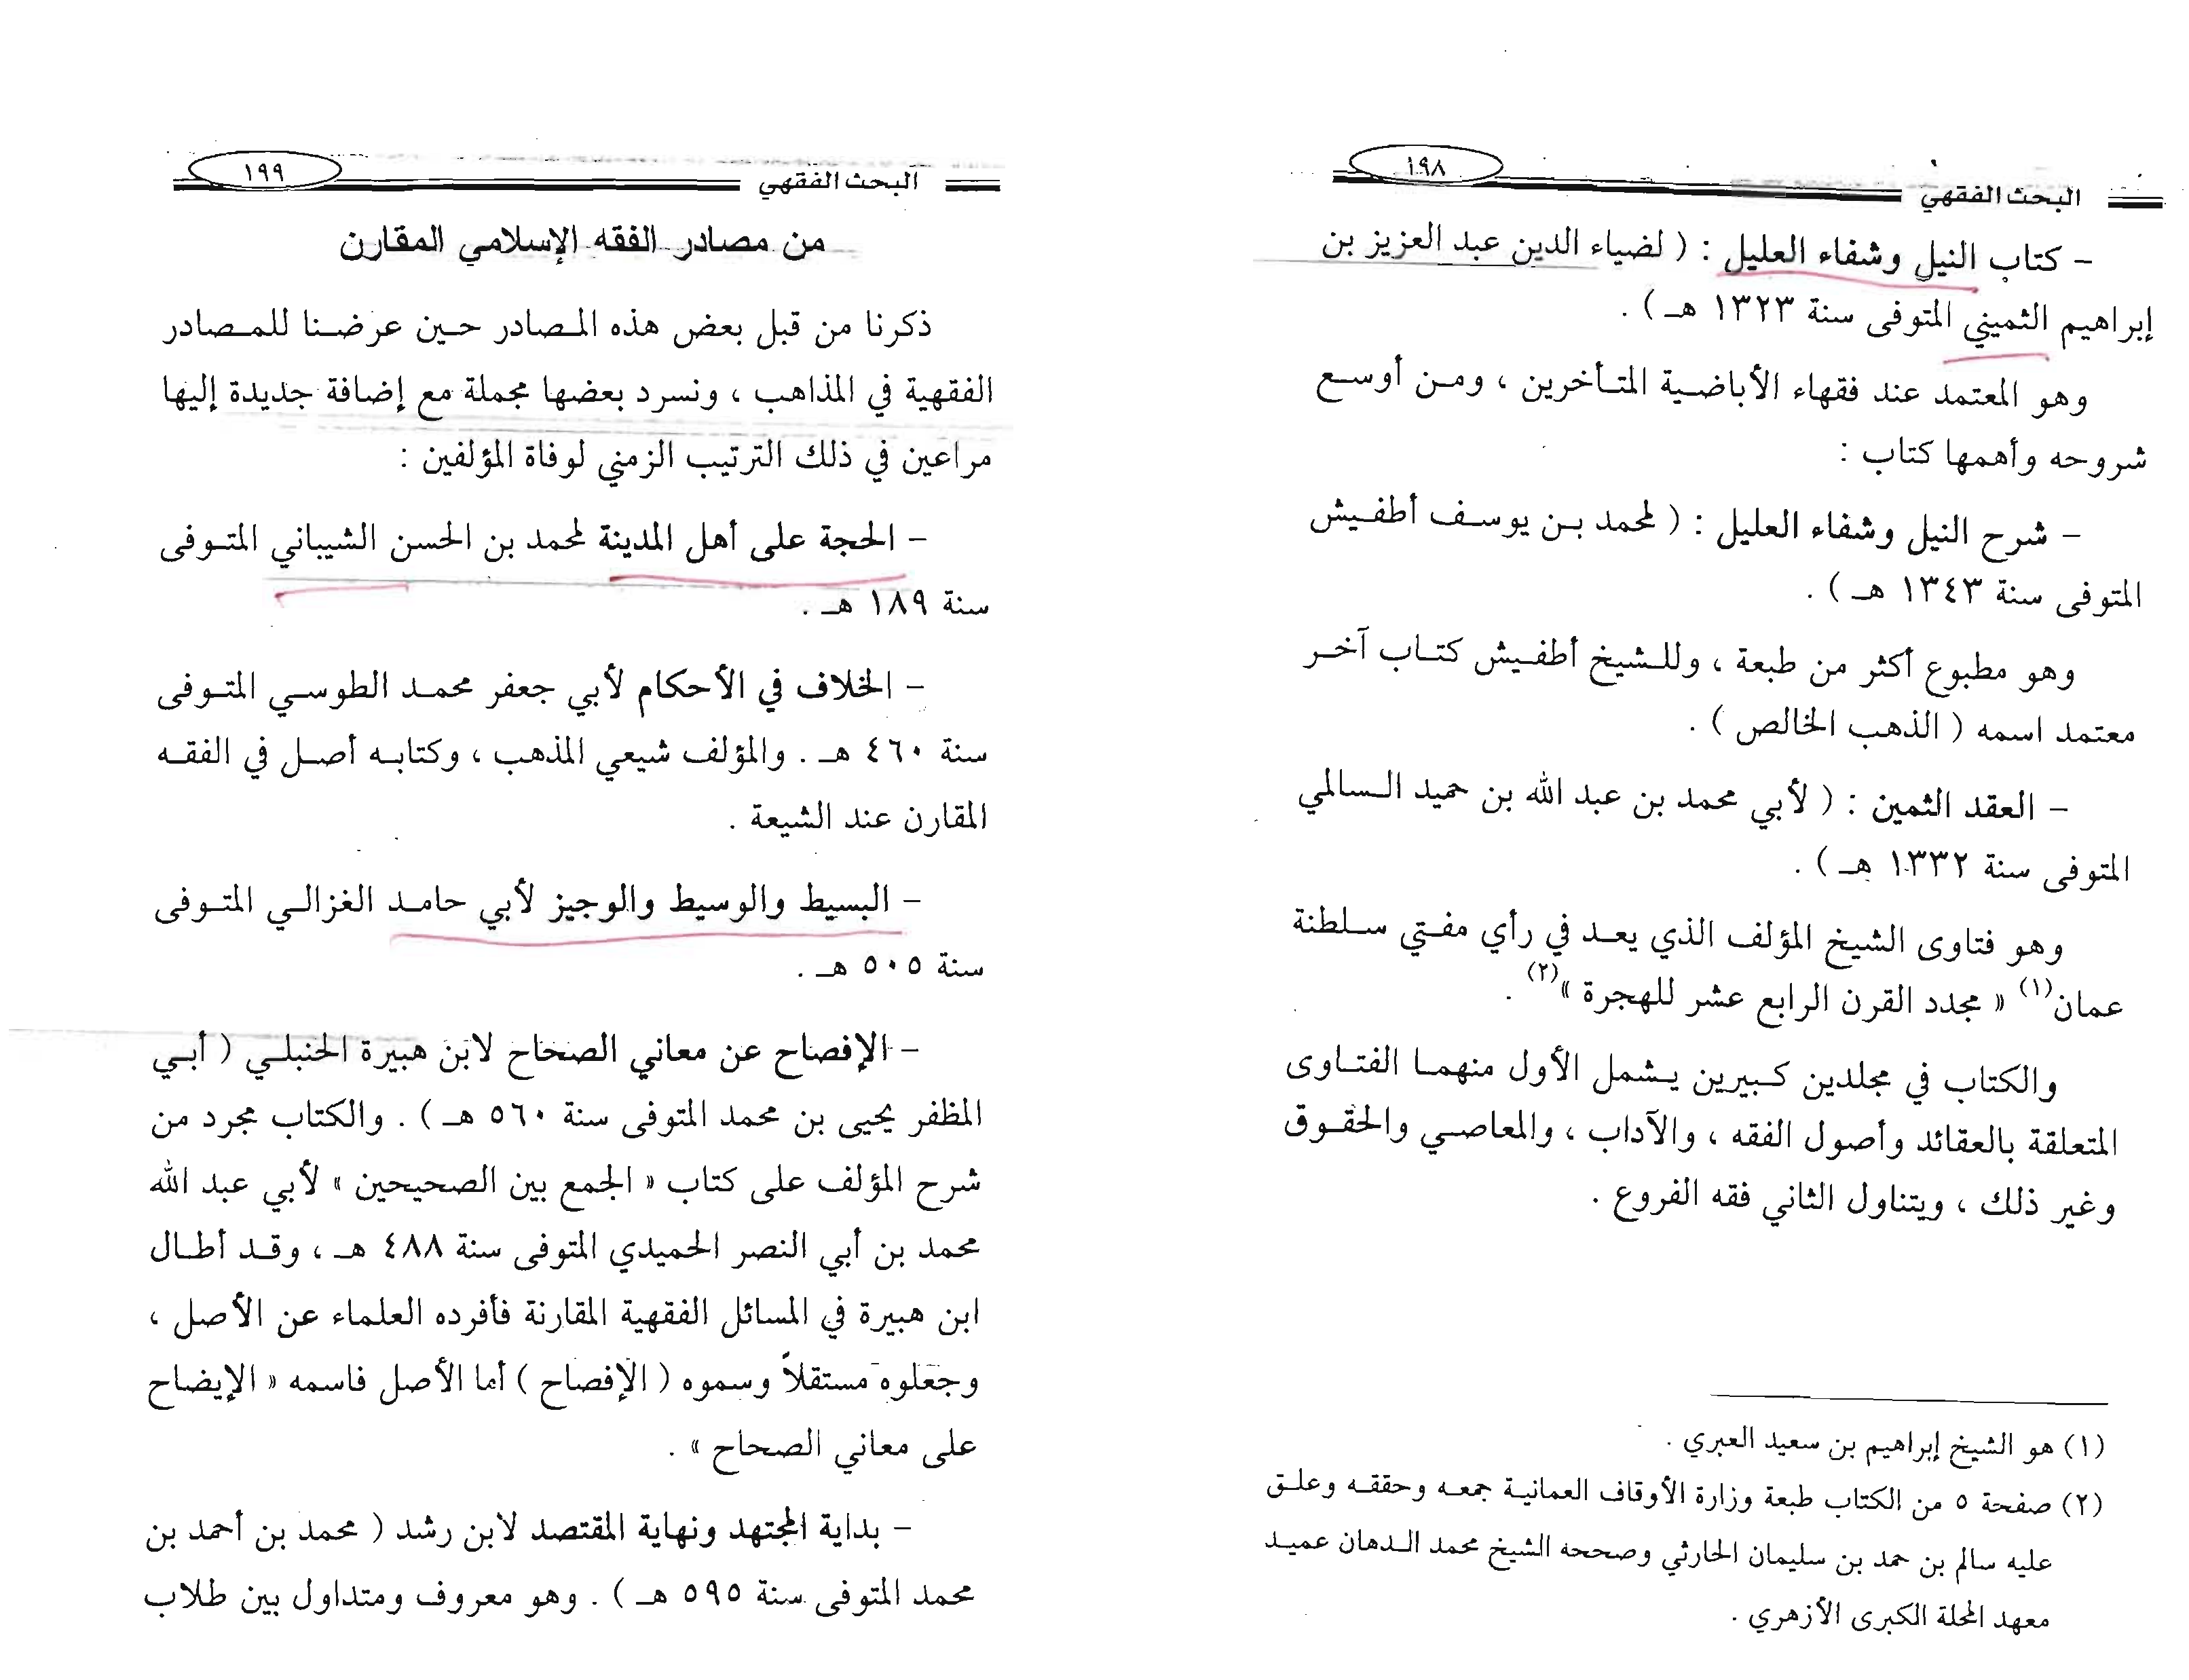 البحث الفقهي ١٩٨
- كتاب النيل وشفاء العليل : ( لضياء الدين عبد العزيز بن
إبراهيم الثميني المتوفى سنة ١٣٢٣ هـ ) .
وهو المعتمد عند فقهاء الأباضية المتأخرين ، ومن أوسع
شروحه وأهمها كتاب :
- شرح النيل وشفاء العليل : ( لمحمد بن يوسف أطفيش
المتوفى سنة ١٣٤٣ هـ ) .
وهو مطبوع أكثر من طبعة ، وللشيخ أطفيش كتاب آخر
معتمد اسمه ( الذهب الخالص ) .
- العقد الثمين : ( لأبي محمد بن عبد الله بن حميد السالمي
المتوفى سنة ١٣٣٢ هـ ) .
وهو فتاوى الشيخ المؤلف الذي يعد في رأي مفتي سلطنة
عمان(١) « مجدد القرن الرابع عشر للهجرة »(٢) .
والكتاب في مجلدين كبيرين يشمل الأول منهما الفتاوى
المتعلقة بالعقائد وأصول الفقه ، والآداب ، والمعاصي والحقوق
وغير ذلك ، ويتناول الثاني فقه الفروع .
(١) هو الشيخ إبراهيم بن سعيد العبري .
(٢) صفحة ٥ من الكتاب طبعة وزارة الأوقاف العمانية جمعه وحققه وعلق
عليه سالم بن حمد بن سليمان الحارثي وصححه الشيخ محمد الدهان عميد
معهد المحلة الكبرى الأزهري .
البحث الفقهي ١٩٩
من مصادر الفقه الإسلامي المقارن
ذكرنا من قبل بعض هذه المصادر حين عرضنا للمصادر
الفقهية في المذاهب ، ونسرد بعضها مجملة مع إضافة جديدة إليها
مراعين في ذلك الترتيب الزمني لوفاة المؤلفين :
- الحجة على أهل المدينة لمحمد بن الحسن الشيباني المتوفى
سنة ١٨٩ هـ .
- الخلاف في الأحكام لأبي جعفر محمد الطوسي المتوفى
سنة ٤٦٠ هـ . والمؤلف شيعي المذهب ، وكتابه أصل في الفقه
المقارن عند الشيعة .
- البسيط والوسيط والوجيز لأبي حامد الغزالي المتوفى
سنة ٥٠٥ هـ .
- الإفصاح عن معاني الصحاح لابن هبيرة الحنبلي ( أبي
المظفر يحيى بن محمد المتوفى سنة ٥٦٠ هـ ) . والكتاب مجرد من
شرح المؤلف على كتاب « الجمع بين الصحيحين » لأبي عبد الله
محمد بن أبي النصر الحميدي المتوفى سنة ٤٨٨ هـ ، وقد أطال
ابن هبيرة في المسائل الفقهية المقارنة فأفرده العلماء عن الأصل ،
وجعلوه مستقلاً وسموه ( الإفصاح ) أما الأصل فاسمه « الإيضاح
على معاني الصحاح » .
- بداية المجتهد ونهاية المقتصد لابن رشد ( محمد بن أحمد بن
محمد المتوفى سنة ٥٩٥ هـ ) . وهو معروف ومتداول بين طلاب